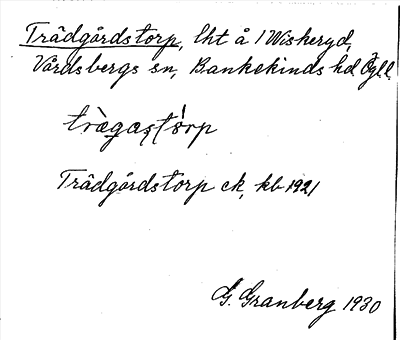 Trädgårdstorp, lht å 1 Wiskeryd,
Vårdsbergs sn, Bankekinds hd Ögl.
trägastorp
Trädgårdstorp ek, kb 1921
G. Granberg 1930